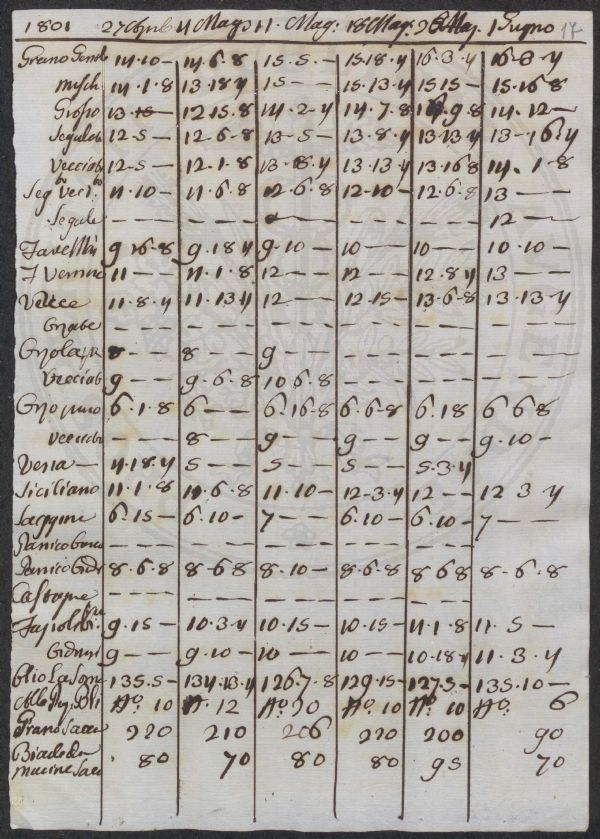 1801 27 Aprile 4 Mago 11 · Mag: 18 Mag: 26 Mag. 1 Giugno 17
Grano Gentile 14·10 – 14·6·8 15·5 – 15·18·4 16·3·4 16·8·4
Misch 14·1·8 13·18·4 15 – – 15·13·4 15·15 – 15·16·8
Grosso 13·15 – 12·15·8 14·2·4 14·7·8 14·9·8 14·12 –
Segalato 12·5 – 12·6·8 13·5 – 13·8·4 13·13·4 13·16·4
Vecciato 12·5 – 12·1·8 13·8·4 13·13·4 13·16·8 14·1·8
Seg Vecc 11·10 – 11·6·8 12·6·8 12·10 – 12·6·8 13 – –
Segale – – – – – – – – – – – – – – 12 – –
9·16·8 9·18·4 9·10 – 10 – – 10 – – 10·10 –
11 – – 11·1·8 12 – – 12 – – 12·8·4 13 – –
Vecce 11·8·4 11·13·4 12 – – 12·15 – 13·6·8 13·13·4
– – – – – – – – – – – – – – – – – –
8 – – 8 – – 9 – – – – – – – – – – –
Vecciato 9 – – 9·6·8 10·6·8 – – – – – – – – –
6·1·8 6 – – 6·16·8 6·6·8 6·18 6·6·8
Vecciato – – – 8 – – 9 – – 9 – – 9 – – 9·10 –
Vena – 4·18·4 5 – – 5 – – 5 – – 5·3·4
Siciliano 11·1·8 11·6·8 11·10 – 12·3·4 12 – – 12·3·4
Saggine 6·15 – 6·10 – 7 – – 6·10 – 6·10 – 7 – –
Panico – – – – – – – – – – – – – – – – – –
Panico 8·6·8 8·6·8 8·10 – 8·6·8 8·6·8 8·6·8
Castagne – – – – – – – – – – – – – – – – – –
Fagioli 9·15 – 10·3·4 10·15 – 10·15 – 11·1·8 11·5 –
9 – – 9·10 – 10 – – 10 – – 10·18·4 11·3·4
Olio La Soma 135·5 – 134·13·4 126·7·8 129·15 – 127·5 – 135·10 –
No. 10 No. 12 No. 20 No. 10 No. 10 No. 6
Grano Sacca 220 210 206 220 200 90
Biade da 80 70 80 80 95 70
macine Sacca